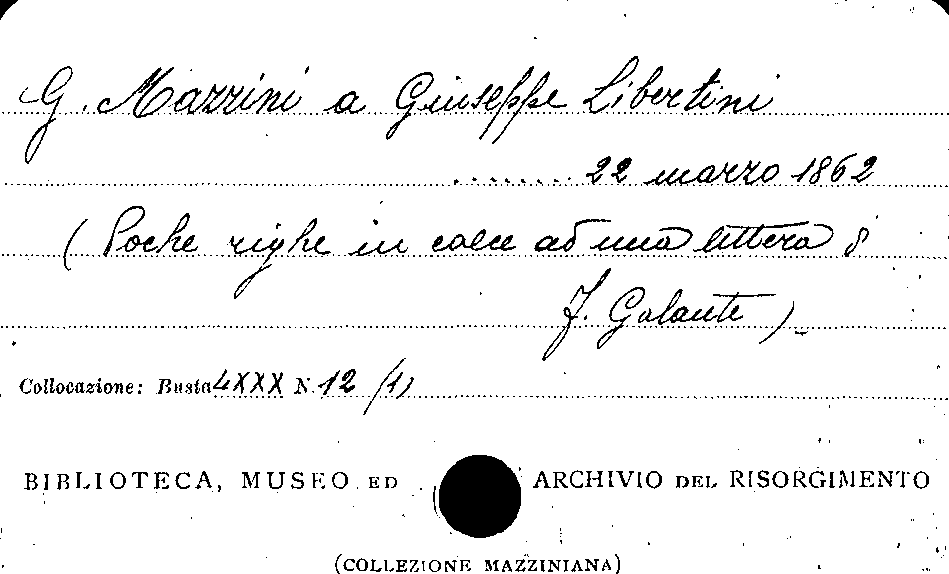 G. Mazzini a Giuseppe Libertini
........ 22 marzo 1862
(Poche righe in calce ad una lettera d
F. Galante)
Collocazione: Busta LXXX N. 12 /1)
BIBLIOTECA, MUSEO ED ARCHIVIO DEL RISORGIMENTO
(COLLEZIONE MAZZINIANA)